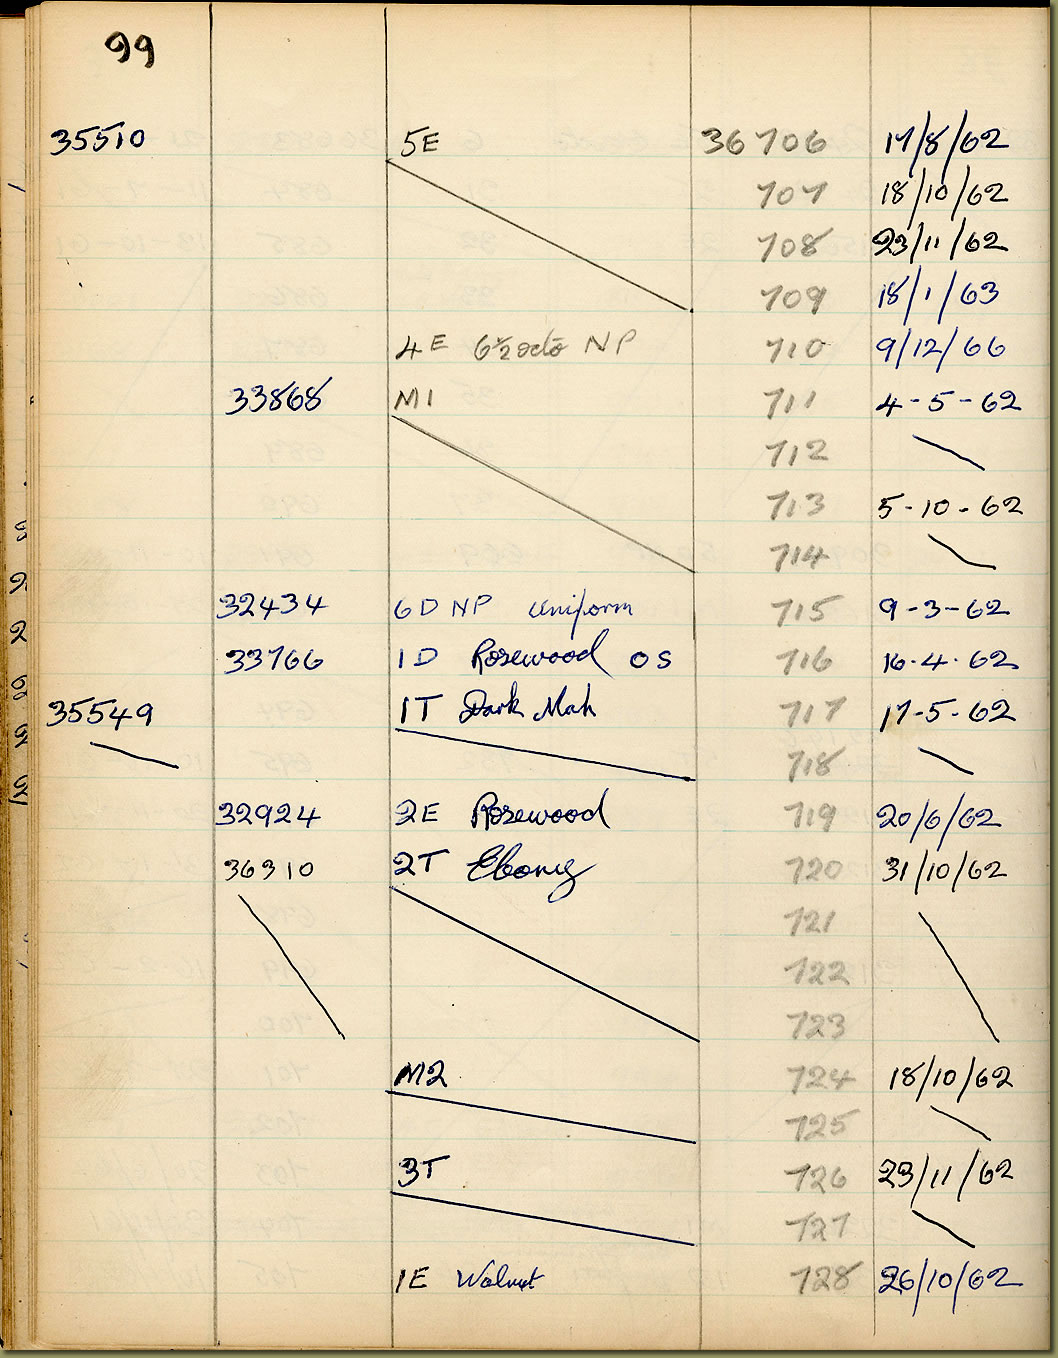 99
35510 5E 36706 17/8/62
707 18/10/62
708 23/11/62
709 18/1/63
4E 6½ octo NP 710 9/12/66
33868 M1 711 4-5-62
712
713 5-10-62
714
32434 6D NP Uniform 715 9-3-62
33766 1D Rosewood OS 716 16.4.62
35549 1T Dark Mah 717 17-5-62
718
32924 2E Rosewood 719 20/6/62
36310 2T Ebony 720 31/10/62
721
722
723
M2 724 18/10/62
725
3T 726 23/11/62
727
1E Walnut 728 26/10/62